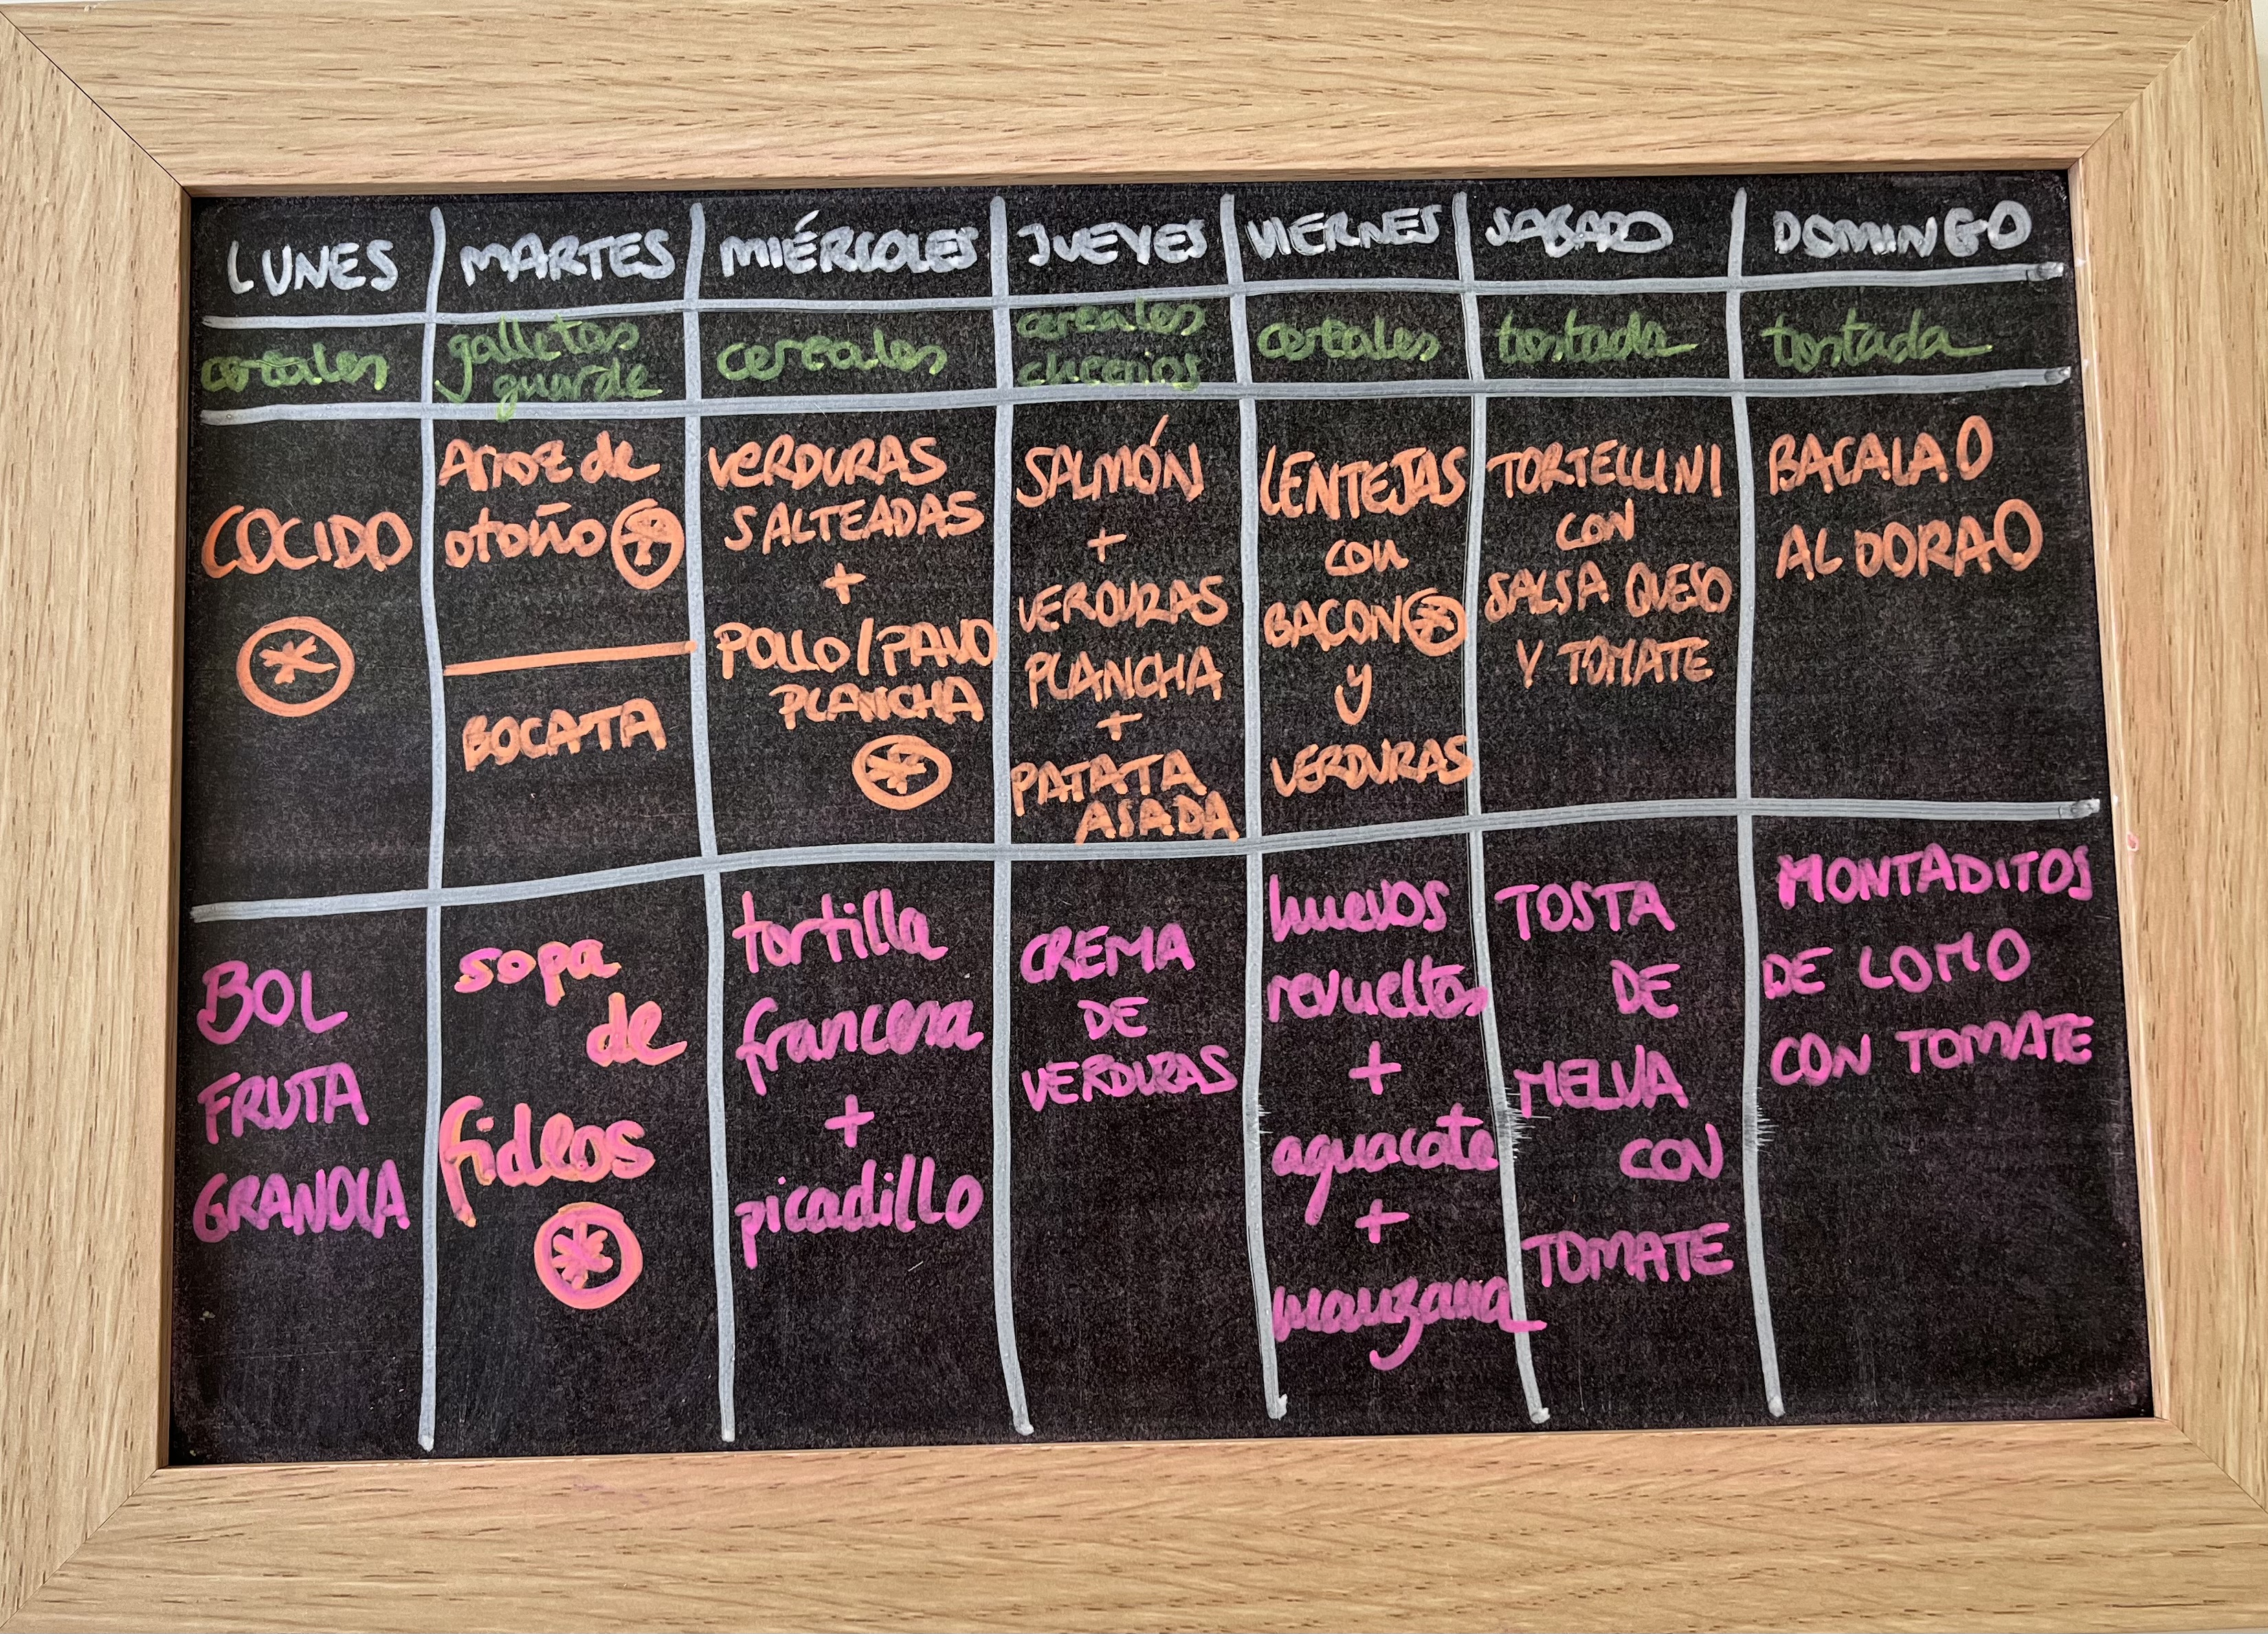 LUNES
MARTES
MIÉRCOLES
JUEVES
VIERNES
SABADO
DOMINGO
cereales
galletas
guarde
cereales
cereales
cheerios
cereales
tostada
tostada
COCIDO
*
Arroz de
otoño *
BOCATA
VERDURAS
SALTEADAS
+
POLLO/PAVO
PLANCHA
*
SALMÓN
+
VERDURAS
PLANCHA
+
PATATA
ASADA
LENTEJAS
con
BACON *
y
VERDURAS
TORTELLINI
CON
SALSA QUESO
Y TOMATE
BACALAO
AL DORAO
BOL
FRUTA
GRANOLA
sopa
de
fideos
*
tortilla
francesa
+
picadillo
CREMA
DE
VERDURAS
huevos
revueltos
+
aguacate
+
manzana
TOSTA
DE
MELVA
CON
TOMATE
MONTADITOS
DE LOMO
CON TOMATE